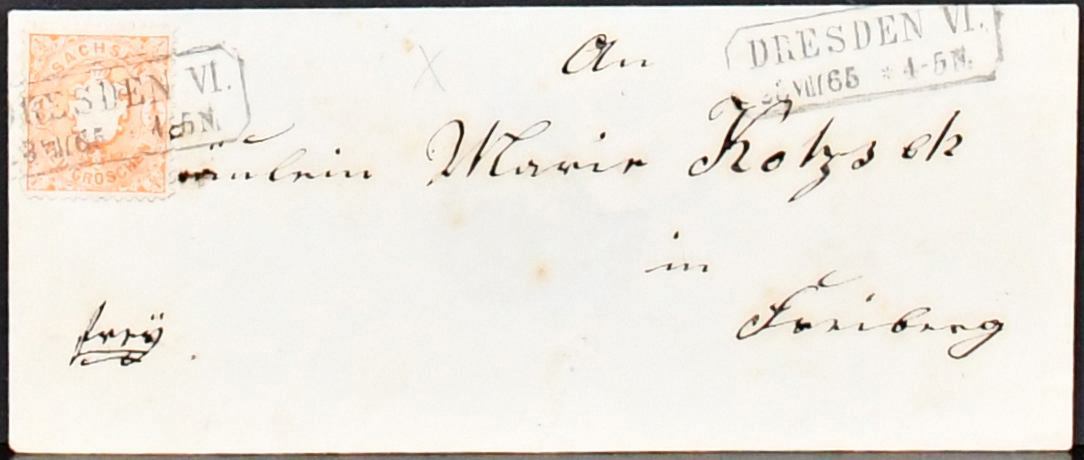 SACHSEN
GROSCHEN
DRESDEN VI.
VII/65 4-5N.
DRESDEN VI.
VIII/65 * 4-5N.
An
Fräulein Marie Kotzsch
in
Freiberg
frey